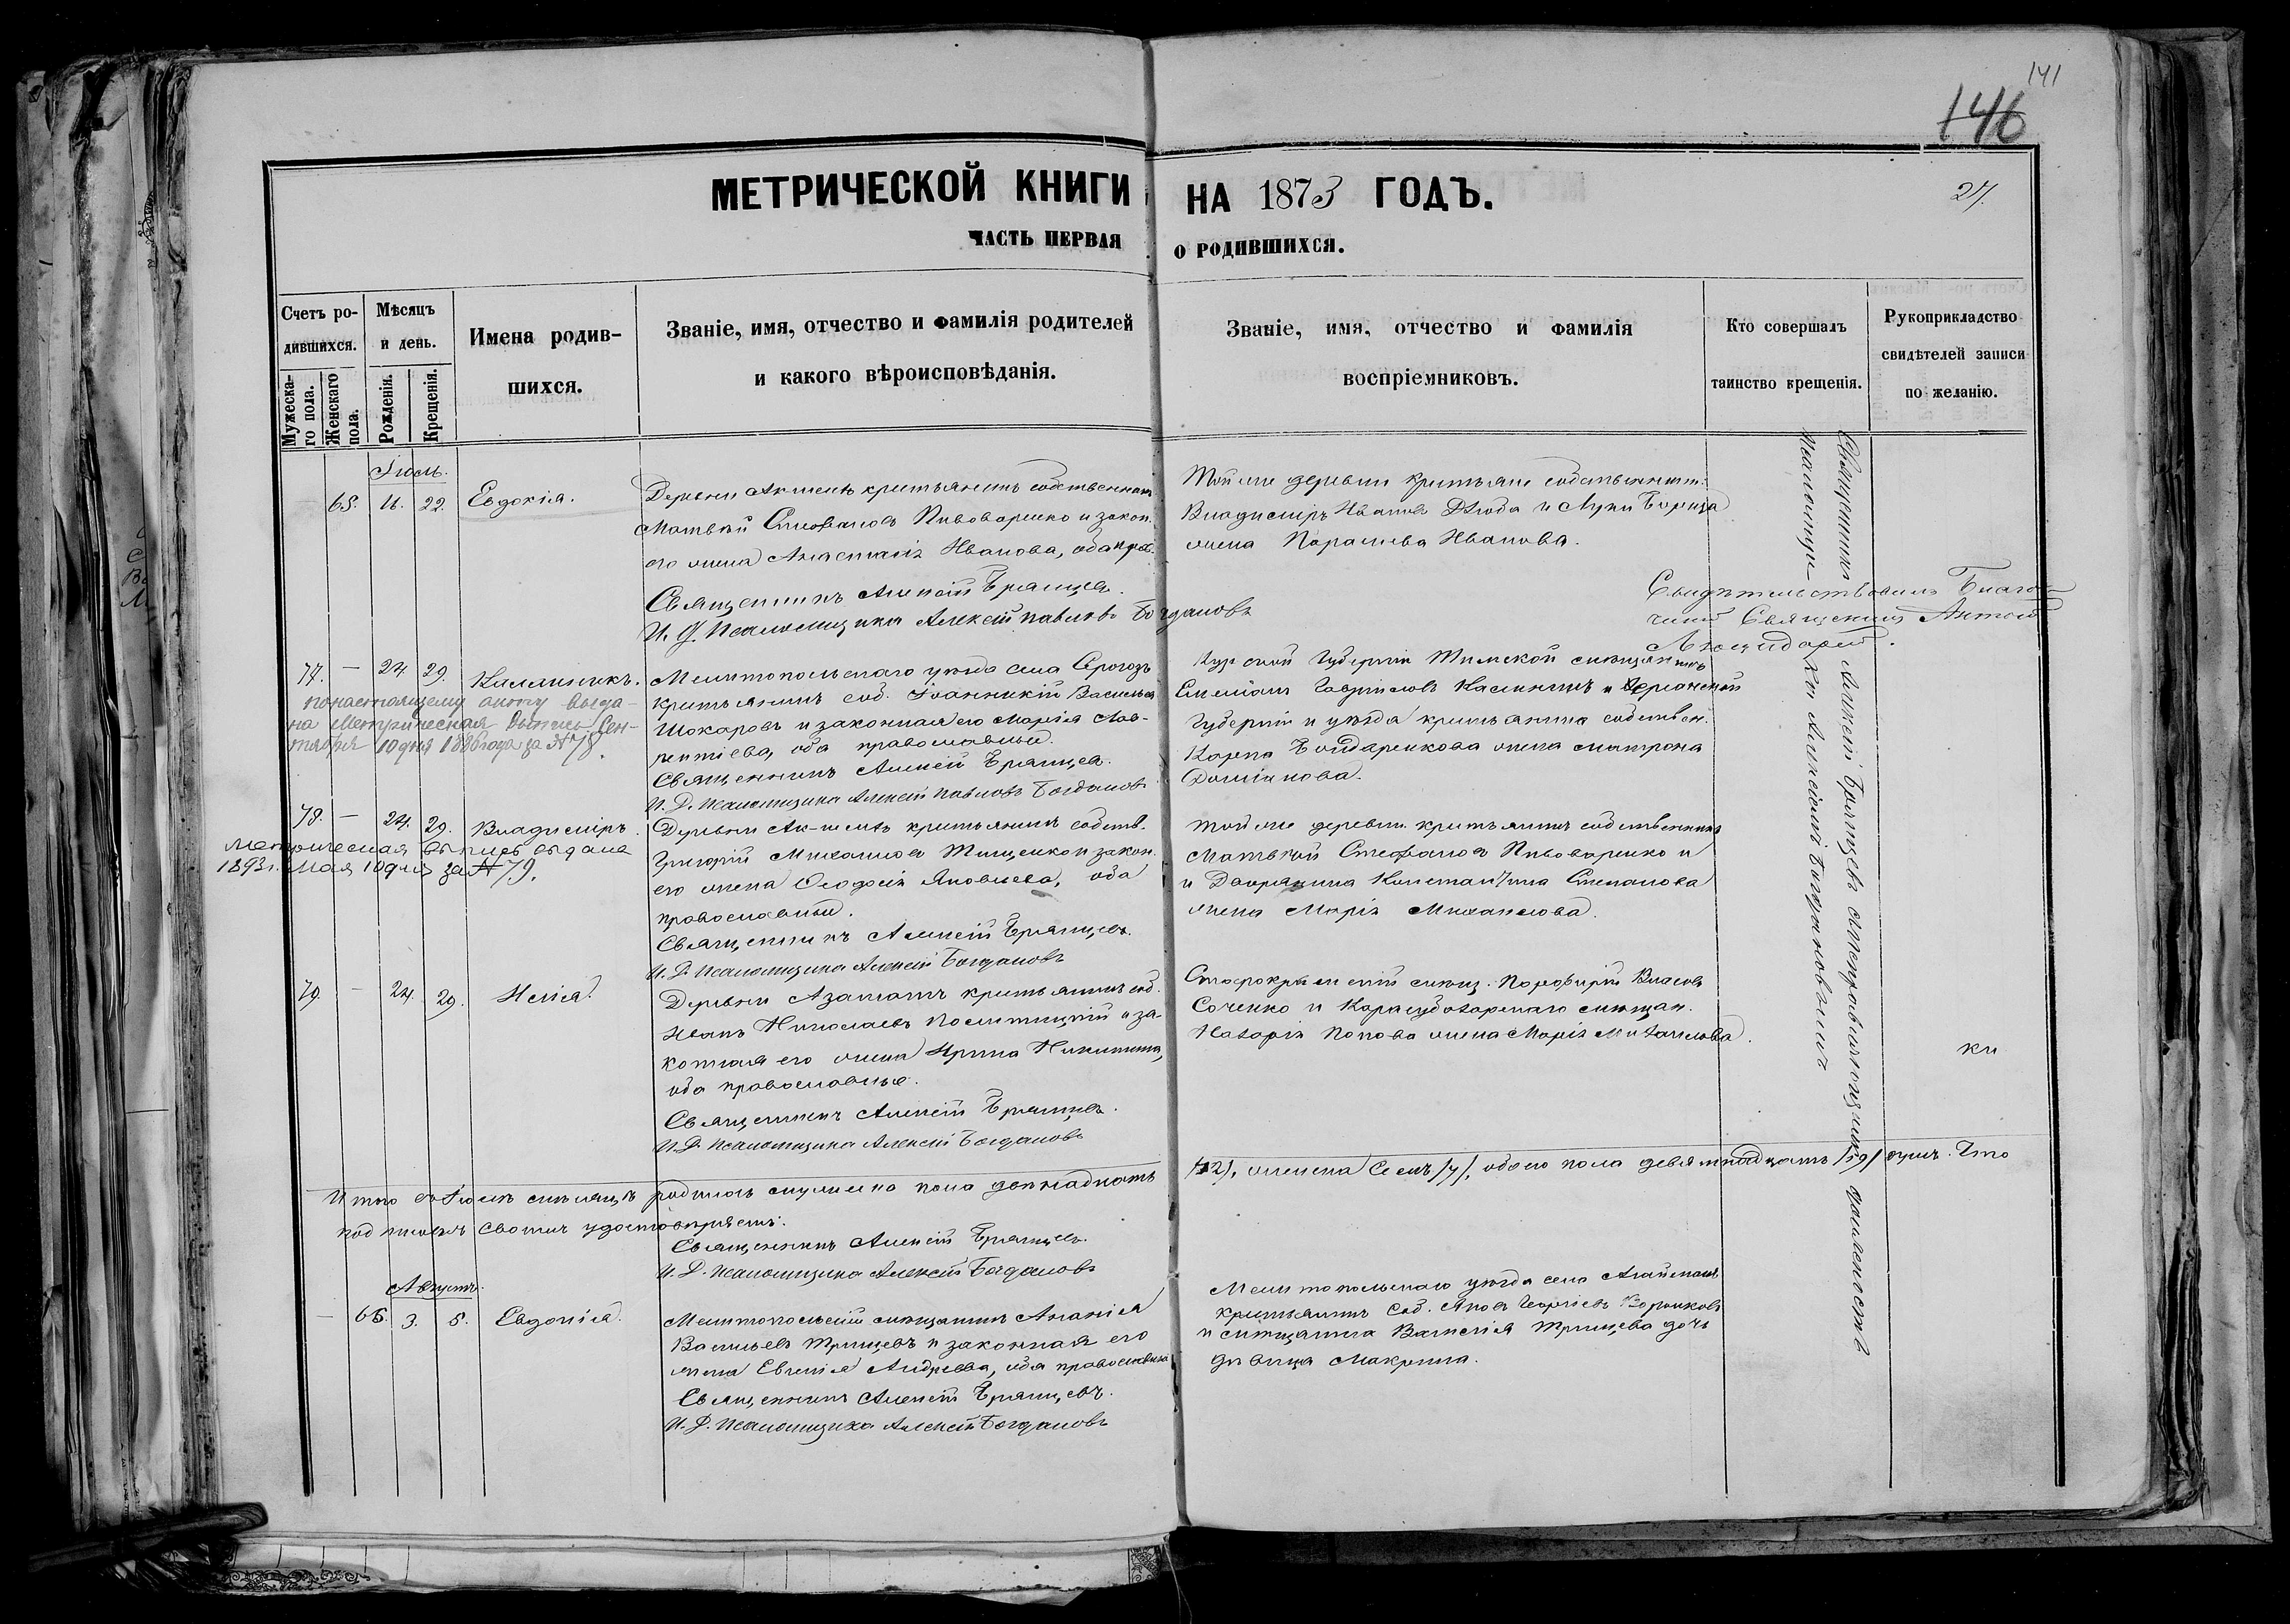 141
146
МЕТРИЧЕСКОЙ КНИГИ НА 1873 ГОДЪ.
27.
ЧАСТЬ ПЕРВАЯ О РОДИВШИХСЯ.
Счетъ ро-
дившихся.
Мужеска-
го пола.
Женскаго
пола.
Мѣсяцъ
и день.
Рожденія.
Крещенія.
Имена родив-
шихся.
Званіе, имя, отчество и фамилія родителей
и какого вѣроисповѣданія.
Званіе, имя, отчество и фамилія
воспріемниковъ.
Кто совершалъ
таинство крещенія.
Рукоприкладство
свидѣтелей записи
по желанію.
Іюль.
65. 22. Евдокія.
Деревни крестьянинъ собственникъ
Матвѣй Стефановъ Пивоваренко и закон.
его жена Анастасія Иванова, оба прав.
Священникъ Алексій Брянцевъ.
И. Д. Псаломщика Алексѣй Павловъ Богдановъ
Той же деревни крестьяне собственник.
Владиміръ Ивановъ Дзюба и Луки
жена Параскева Иванова.
Свидѣтельствовалъ Благо-
чинный Священникъ
77. — 24. 29. Каллиникъ.
По настоящему акту выда-
на Метрическая выпись Сен-
тября 10 дня 1886 года за № 78.
Мелитопольскаго уѣзда села Серогозъ
крестьянинъ соб. Іоанникій Васильевъ
Шокаровъ и законная его Марія Лав-
рентіева, оба православные.
Священникъ Алексѣй Брянцевъ.
И. Д. Псаломщика Алексѣй Павловъ Богдановъ
Курской Губерніи Тимской мѣщанинъ
Гавріиловъ Калининъ и Херсонской
Губерніи и уѣзда крестьянина собствен.
Карпа Бондаренкова жена Матрона
78. — 24. 29. Владиміръ.
Метрическая выпись выдана
1893 г. Мая 10 дня за № 79.
Деревни крестьянинъ собств.
Григорій Михайловъ Тищенко и закон.
его жена Ѳеодосія Яковлева, оба
православные.
Священникъ Алексѣй Брянцевъ.
И. Д. Псаломщика Алексѣй Богдановъ
Той же деревни крестьянинъ собственникъ
Матвѣй Стефановъ Пивоваренко и
и Дворянина Константина Степанова
жена Марія Михайлова.
79. — 24. 29. Илія.
Деревни Азаматъ крестьянинъ соб.
Иванъ Николаевъ и за-
конная его жена Ирина Никитина,
оба православные.
Священникъ Алексѣй Брянцевъ.
И. Д. Псаломщика Алексѣй Богдановъ
Старокрымскій мѣщ. Порфирій Власовъ
Соченко и Карасубазарскаго мѣщан.
Назарія Попова жена Марія Михайлова.
ки
Итого въ Іюлѣ мѣсяцѣ родилось мужеска пола двѣнадцать /12/, женска Семь /7/, обоего пола девятнадцать /19/ душъ. Что
подписомъ своимъ удостовѣряемъ:
Священникъ Алексѣй Брянцевъ.
И. Д. Псаломщика Алексѣй Богдановъ
Августъ.
— 66. 3. 5. Евдокія.
Мелитопольскій мѣщанинъ Ананія
Васильевъ Трищевъ и законная его
жена Евгенія Андреева, оба православные
Священникъ Алексѣй Брянцевъ.
И. Д. Псаломщика Алексѣй Богдановъ
Мелитопольскаго уѣзда села Агайманъ
крестьянинъ Соб. Яковъ Георгіевъ Воронковъ
и мѣщанина Василія Трищева дочь
дѣвица Макрина.
Священникъ Алексій Брянцевъ